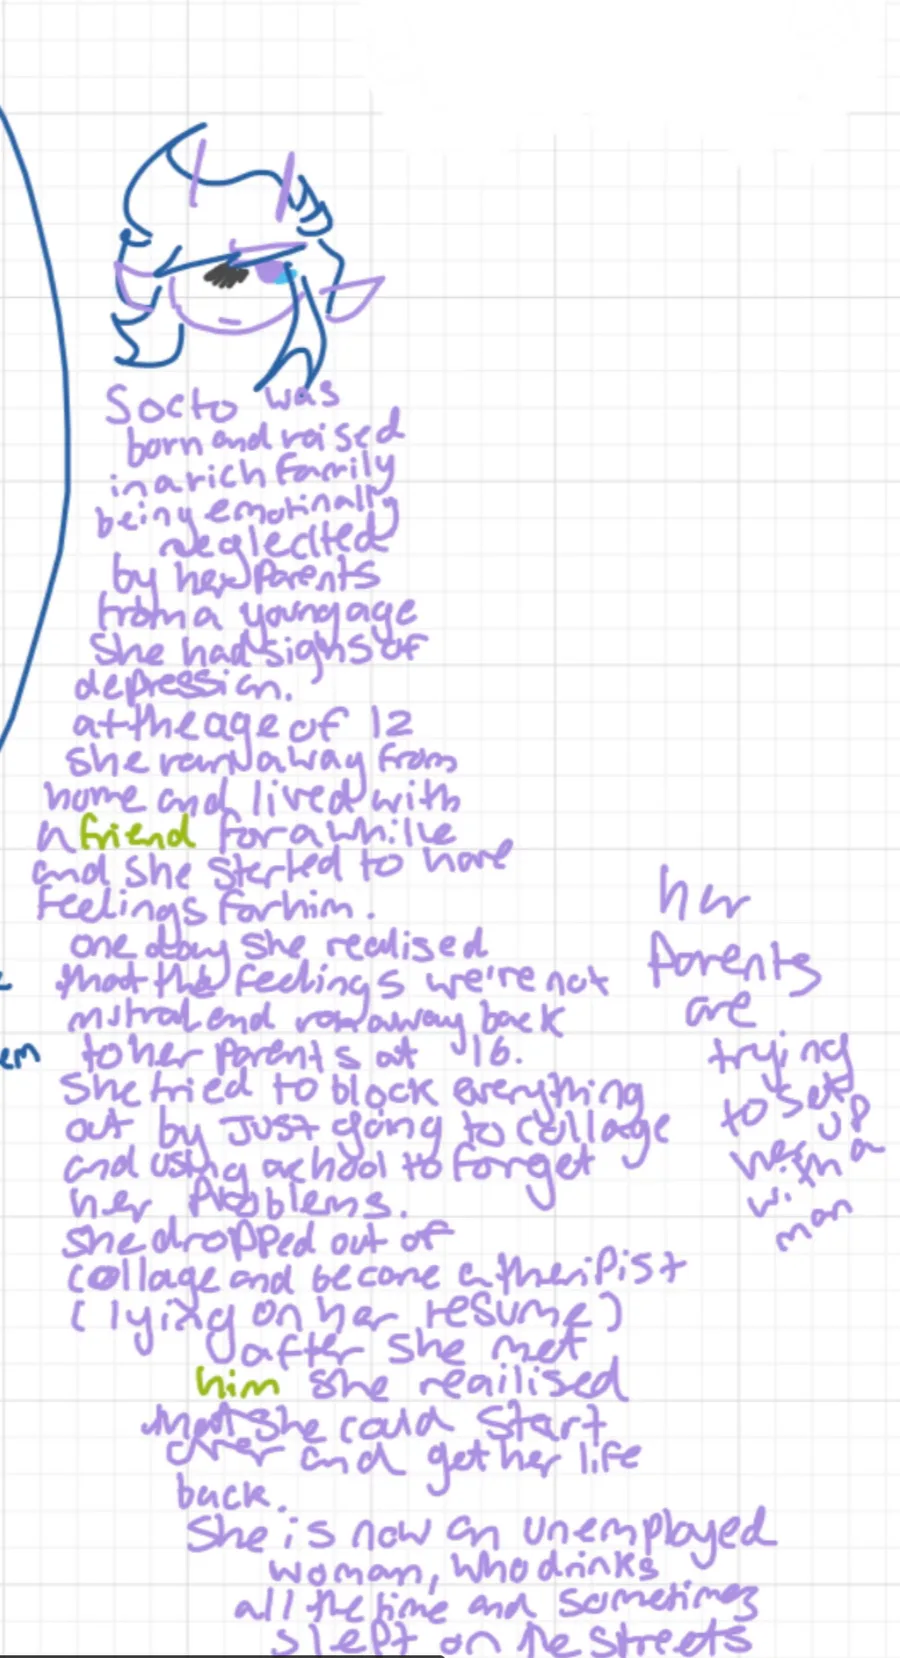 Socto was
born and raised
in a rich family
being emotinally
neglected
by her parents
from a young age
She had signs of
depression.
at the age of 12
she ran away from
home and lived with
a friend for a while
and she sterted to have
feelings for him.
one day she realised
that the feelings we're not
mutral and ran away back
to her parents at 16.
She tried to block everything
out by JUST going to collage
and using achool to forget
her Problems.
she dropped out of
collage and become a theripist
(lying on her resume)
after she met
him she reailised
that she could start
over and get her life
back.
She is now an unemployed
woman, who drinks
all the time and sometimes
slept on the streets
her
Parents
are
trying
to set
up
her
with a
man
em